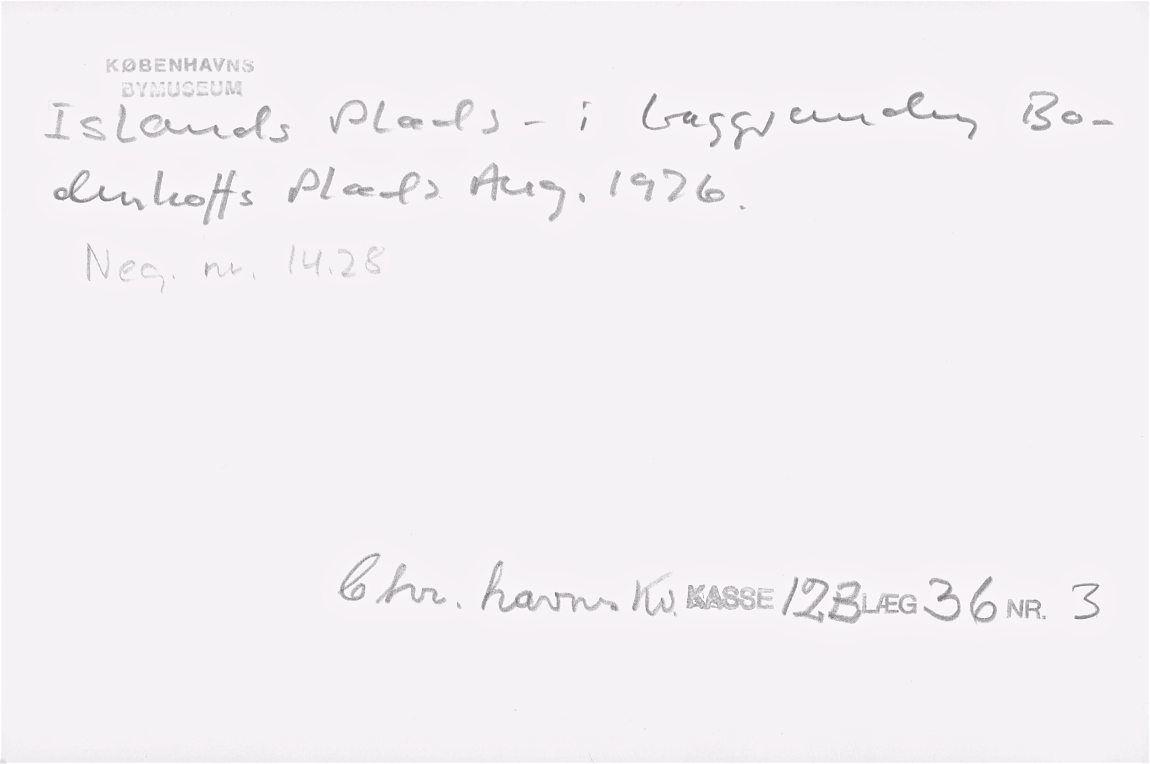 KØBENHAVNS
BYMUSEUM
Islands Plads - i baggrunden Bo-
denhoffs Plads Aug. 1926.
Neg. nr. 14.28
Chr. havns Kv. KASSE 12B LÆG 36 NR. 3